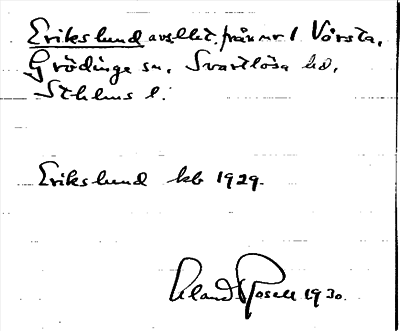 Erikslund avs.lht. från nr 1 Vårsta,
Grödinge sn. Svartlösa hd,
Sthlms l.
Erikslund kb 1929.
Roland Rosell 1930.